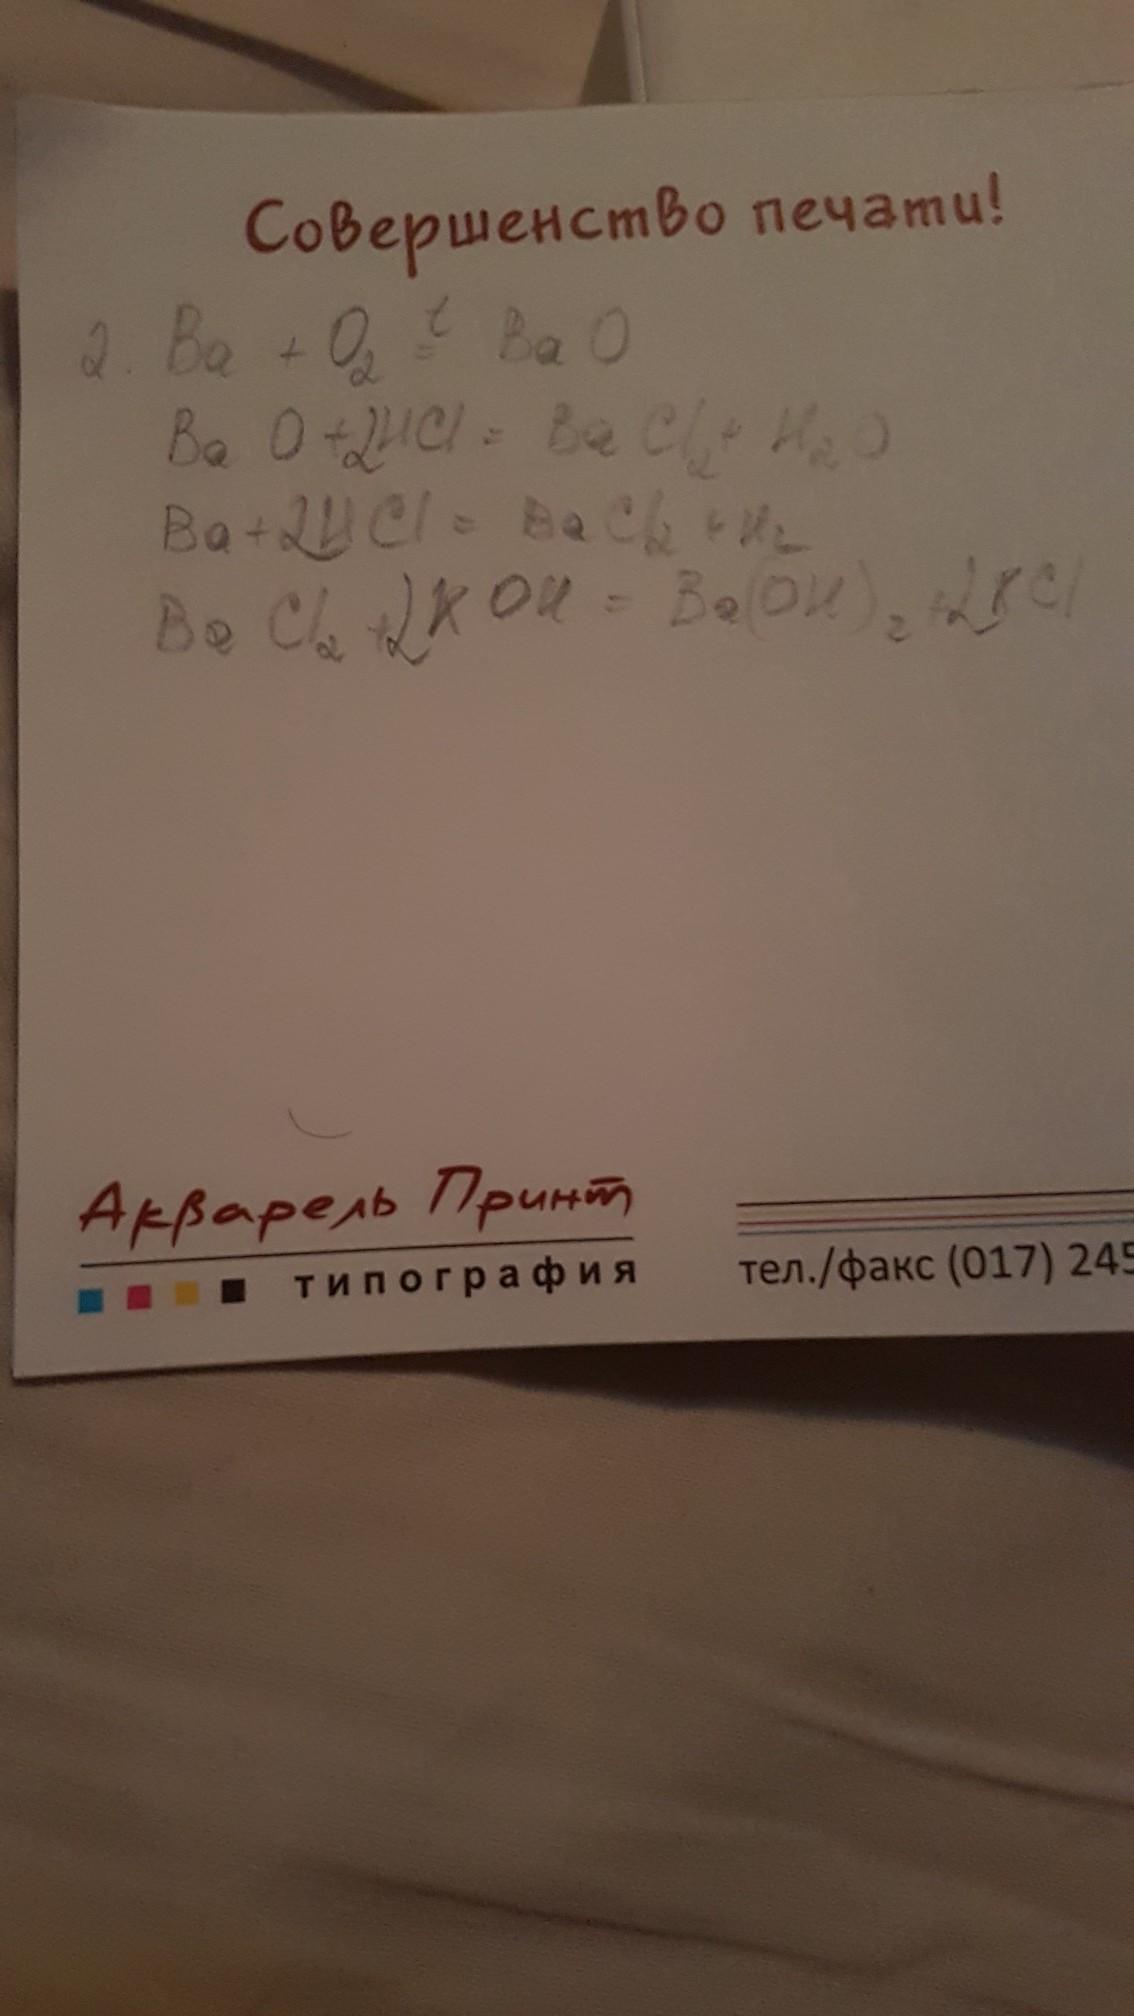 Совершенство печати!
2. Ba + O₂ =ᵗ BaO
BaO+2HCl = BaCl₂ + H₂O
Ba+2HCl = BaCl₂ + H₂
BaCl₂ +2KOH = Ba(OH)₂ +2KCl
Акварель Принт
типография
тел./факс (017) 245